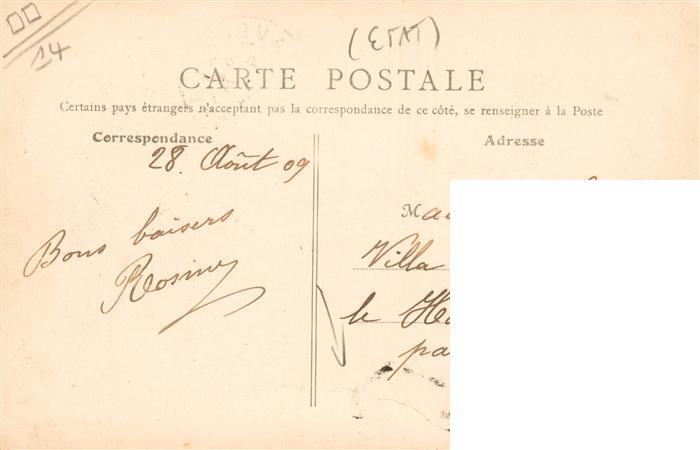 14
(ETAT)
CARTE POSTALE
Certains pays étrangers n'acceptant pas la correspondance de ce côté, se renseigner à la Poste
Correspondance
Adresse
28 Août 09
Bons baisers
Rosine
Villa
le